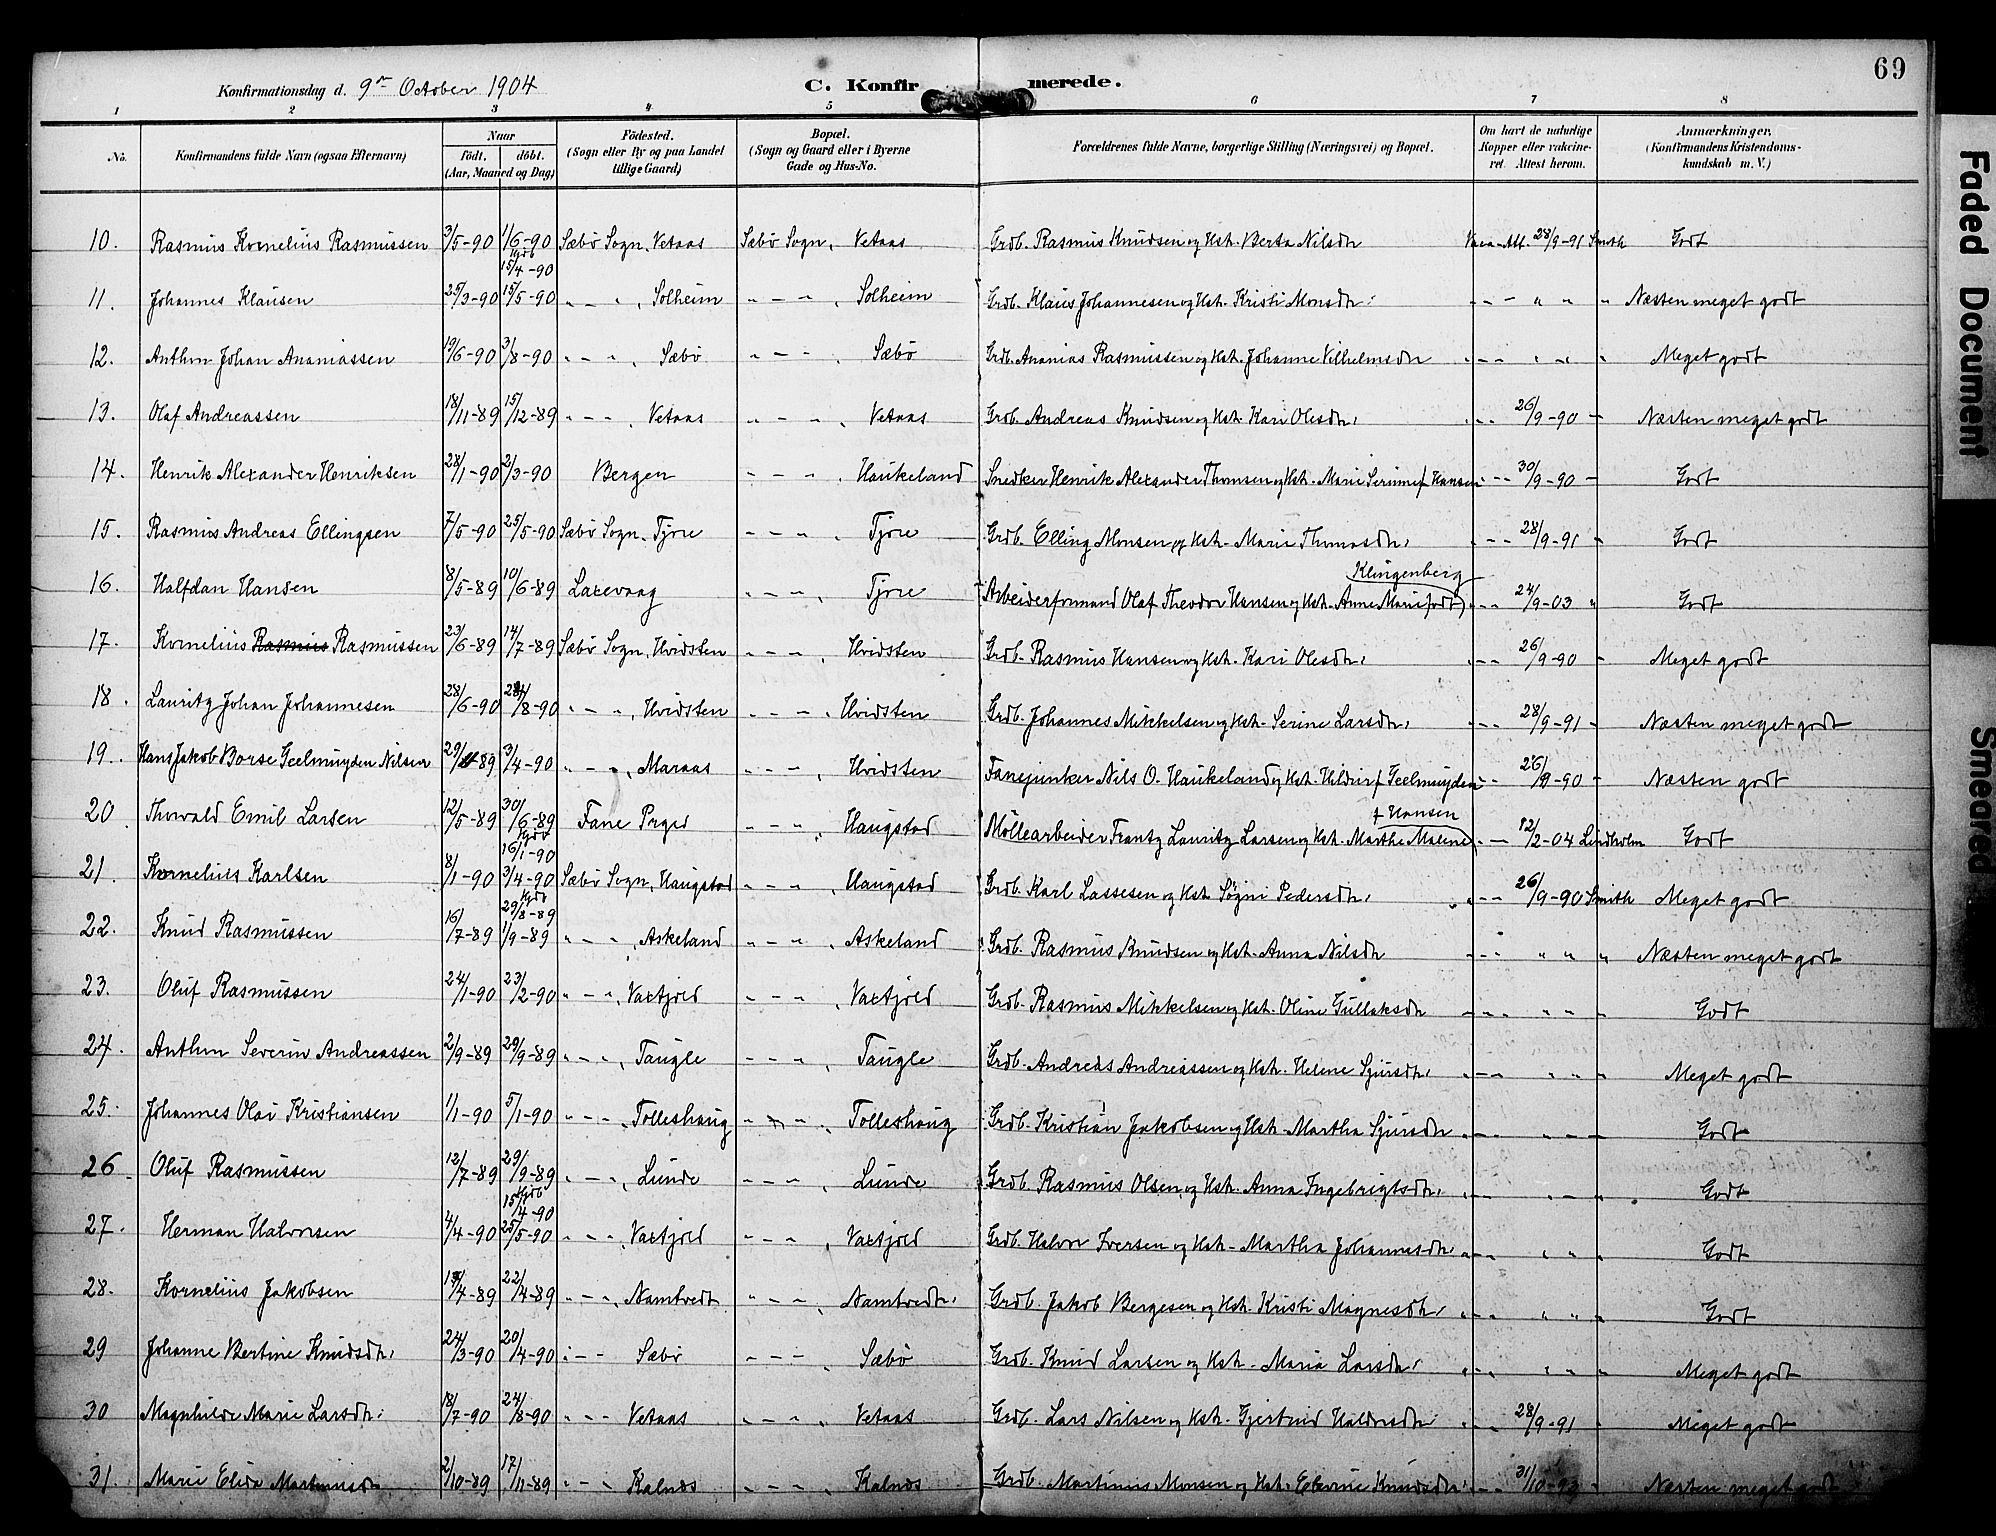 69
Konfirmationsdag d. 9de October 1904 C. Konfirmerede.
1 2 3 4 5 6 7 8
No. Konfirmandens fulde Navn (ogsaa Efternavn) Naar födt. döbt. (Aar, Maaned og Dag) Födested. (Sogn eller By og paa Landet tillige Gaard) Bopæl. (Sogn og Gaard eller i Byerne Gade og Hus-No. Forældrenes fulde Navne, borgerlige Stilling (Næringsvei) og Bopæl. Om havt de naturlige Kopper eller vakcineret. Attest herom. Anmærkninger, (Konfirmandens Kristendomskundskab m. V.)
10. Rasmus Kornelius Rasmussen 3/5-90 1/6-90 Sæbö Sogn, Vetaas Sæbö Sogn, Vetaas Grdb. Rasmus Knudsen og Hst. Berta Nilsdr Vacc.-Att. 28/9-91 Smith Godt
Kjdb 15/4-90
11. Johannes Klausen 25/3-90 15/5-90 " - " , Solheim " - " , Solheim Grdb. Klaus Johannesen og Hst. Kristi Monsdr. - - - " " " Næsten meget godt
12. Anthon Johan Ananiassen 19/6-90 3/8-90 " - " , Sæbö " - " Sæbö Grdb. Ananias Rasmussen og Hst. Johanne Vilhelmsdr " - - " " " Meget godt
13. Olaf Andreassen 18/11-89 15/12-89 " - " , Vetaas " - " , Vetaas Grdb. Andreas Knudsen og Hst. Kari Olesdr. " - 26/9-90 - Næsten meget godt
14. Henrik Alexander Henriksen 28/1-90 2/3-90 Bergen " - " , Haukeland Snedker Henrik Alexander Thomsen og Hst. Marie Serine f. Hansen - - 30/9-90 - Godt
15. Rasmus Andreas Ellingsen 7/5-90 25/5-90 Sæbö Sogn, Fjore " - " , Fjore Grdb. Elling Monsen og Hst. Marie Thomasdr. - - 28/9-91 - Godt
Klingenberg
16. Halfdan Hansen 8/5-89 10/6-89 Laxevaag " - " , Fjore Arbeiderformand Olaf Theodor Hansen og Hst. Anne Marie född - - 24/9-03 " Godt
17. Kornelius Rasmus Rasmussen 23/6-89 14/7-89 Sæbö Sogn, Hvidsten " - " , Hvidsten Grdb. Rasmus Hansen og Hst. Kari Olesdr. - - 26/9-90 - Meget godt
18. Lauritz Johan Johannesen 28/6-90 24/8-90 " - " , Hvidsten " - " , Hvidsten Grdb. Johannes Mikkelsen og Hst. Serine Larsdr. - - 28/9-91 - Næsten meget godt
19. Hans Jakob Borse Geelmuyden Nilsen 29/11-89 3/4-90 " - " , Maraas " - " , Hvidsten Fanejunker Nils O. Haukeland og Hst. Hildur f. Geelmuyden - - 26/9-90 - Næsten godt
f Hansen
20. Thorvald Emil Larsen 12/5-89 30/6-89 Fane Prgjd " - " , Haugstad Möllearbeider Frantz Lauritz Larsen og Hst. Marthe Malene - - 12/2-04 Lindholm Godt
Kjdb 16/1-90
21. Kornelius Karlsen 8/1-90 3/4-90 Sæbö Sogn, Haugstad " - " , Haugstad Grdb. Karl Lassesen og Hst. Søgni Pedersdr. " - - 26/9-90 Smith Meget godt
Kjdb 29/8-89
22. Knud Rasmussen 16/7-89 1/9-89 " - " , Askeland " - " , Askeland Grdb. Rasmus Knudsen og Hst. Anna Nilsdr - - " " " Næsten meget godt
23. Oluf Rasmussen 24/1-90 23/2-90 " - " , Vaxtjold " - " , Vaxtjold Grdb. Rasmus Mikkelsen og Hst. Oline Gullaksdr - - " " " Godt
24. Anthon Severin Andreassen 2/9-89 29/9-89 " - " , Taugle " - " , Taugle Grdb. Andreas Andreassen og Hst. Helene Sjursdr. - - " " " Meget godt
25. Johannes Olai Kristiansen 1/1-90 5/1-90 " - " , Tolleshaug " - " , Tolleshaug Grdb. Kristian Jakobsen og Hst. Martha Sjursdr - - " - - Godt
26. Oluf Rasmussen 12/7-89 29/9-89 " - " , Lunde " - " , Lunde Grdb. Rasmus Olsen og Hst. Anna Ingebrigtsdr. - - " - " Godt
Kjdb 15/4-90
27. Herman Halvorsen 4/4-90 25/5-90 " - " , Vaxtjold " - " , Vaxtjold Grdb. Halvor Iversen og Hst. Martha Johannesdr. - - " " " Godt
28. Kornelius Jakobsen /4-89 22/4-89 " - " , Namtvedt " - " , Namtvedt. Grdb. Jakob Bergesen og Hst. Kristi Magnesdr. - - " " " Godt
29 Johanne Bertine Knudsdr. 24/3-90 20/4-90 " - - Sæbö " - - , Sæbö Grdb. Knud Larsen og Hst. Maria Larsdr. " - " " " Meget godt
30 Magnhilde Marie Larsdr. 18/7-90 24/8-90 " - - Vetaas " - " , Vetaas Grdb. Lars Nilsen og Hst. Gjertrud Haldorsdr " - 28/9-91 - Meget godt
31. Marie Elida Martinusdr 2/10-89 17/11-89 " - - Kalnæs " - " , Kalnæs Grdb. Martinus Monsen og Hst. Elevine Knudsdr. - - 31/10-93 - Næsten meget godt
Faded Document
Smeared